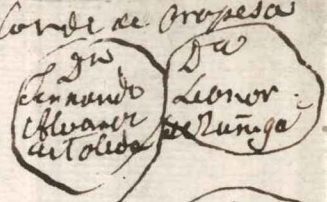 Conde de Oropesa
Dn
Fernando
Alvarez
de Toledo
Da
Leonor
de Zuñiga